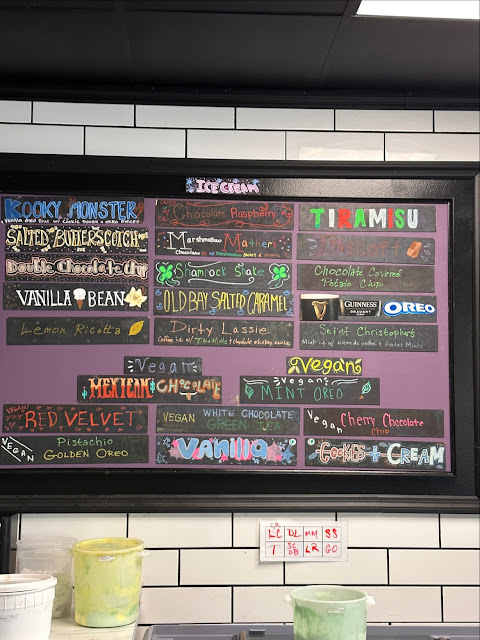 ICE CREAM
KOOKY MONSTER
Vanilla dyed blue w/ cookie dough & oreo pieces
Chocolate Raspberry
TIRAMISU
SALTED BUTTERSCOTCH
Marshmallow Mathers
Chocolate ic w/ marshmallow swirl &
Double Chocolate Chip
Shamrock Shake
Chocolate Covered
Potato Chip
VANILLA BEAN
OLD BAY SALTED CARAMEL
GUINNESS
DRAUGHT
OREO
Lemon Ricotta
Dirty Lassie
Coffee ic w/ Tira Mills & chocolate whiskey sauce
Saint Christopher
Mint ic w/ & Andes Mints
Vegan
Vegan
MEXICAN CHOCOLATE
Vegan
MINT OREO
VEGAN
RED VELVET
VEGAN WHITE CHOCOLATE
GREEN TEA
Vegan Cherry Chocolate
Chip
VEGAN
Pistachio
GOLDEN OREO
Vanilla
COOKIES + CREAM
LC DL MM SS
T SC
OB LR GO